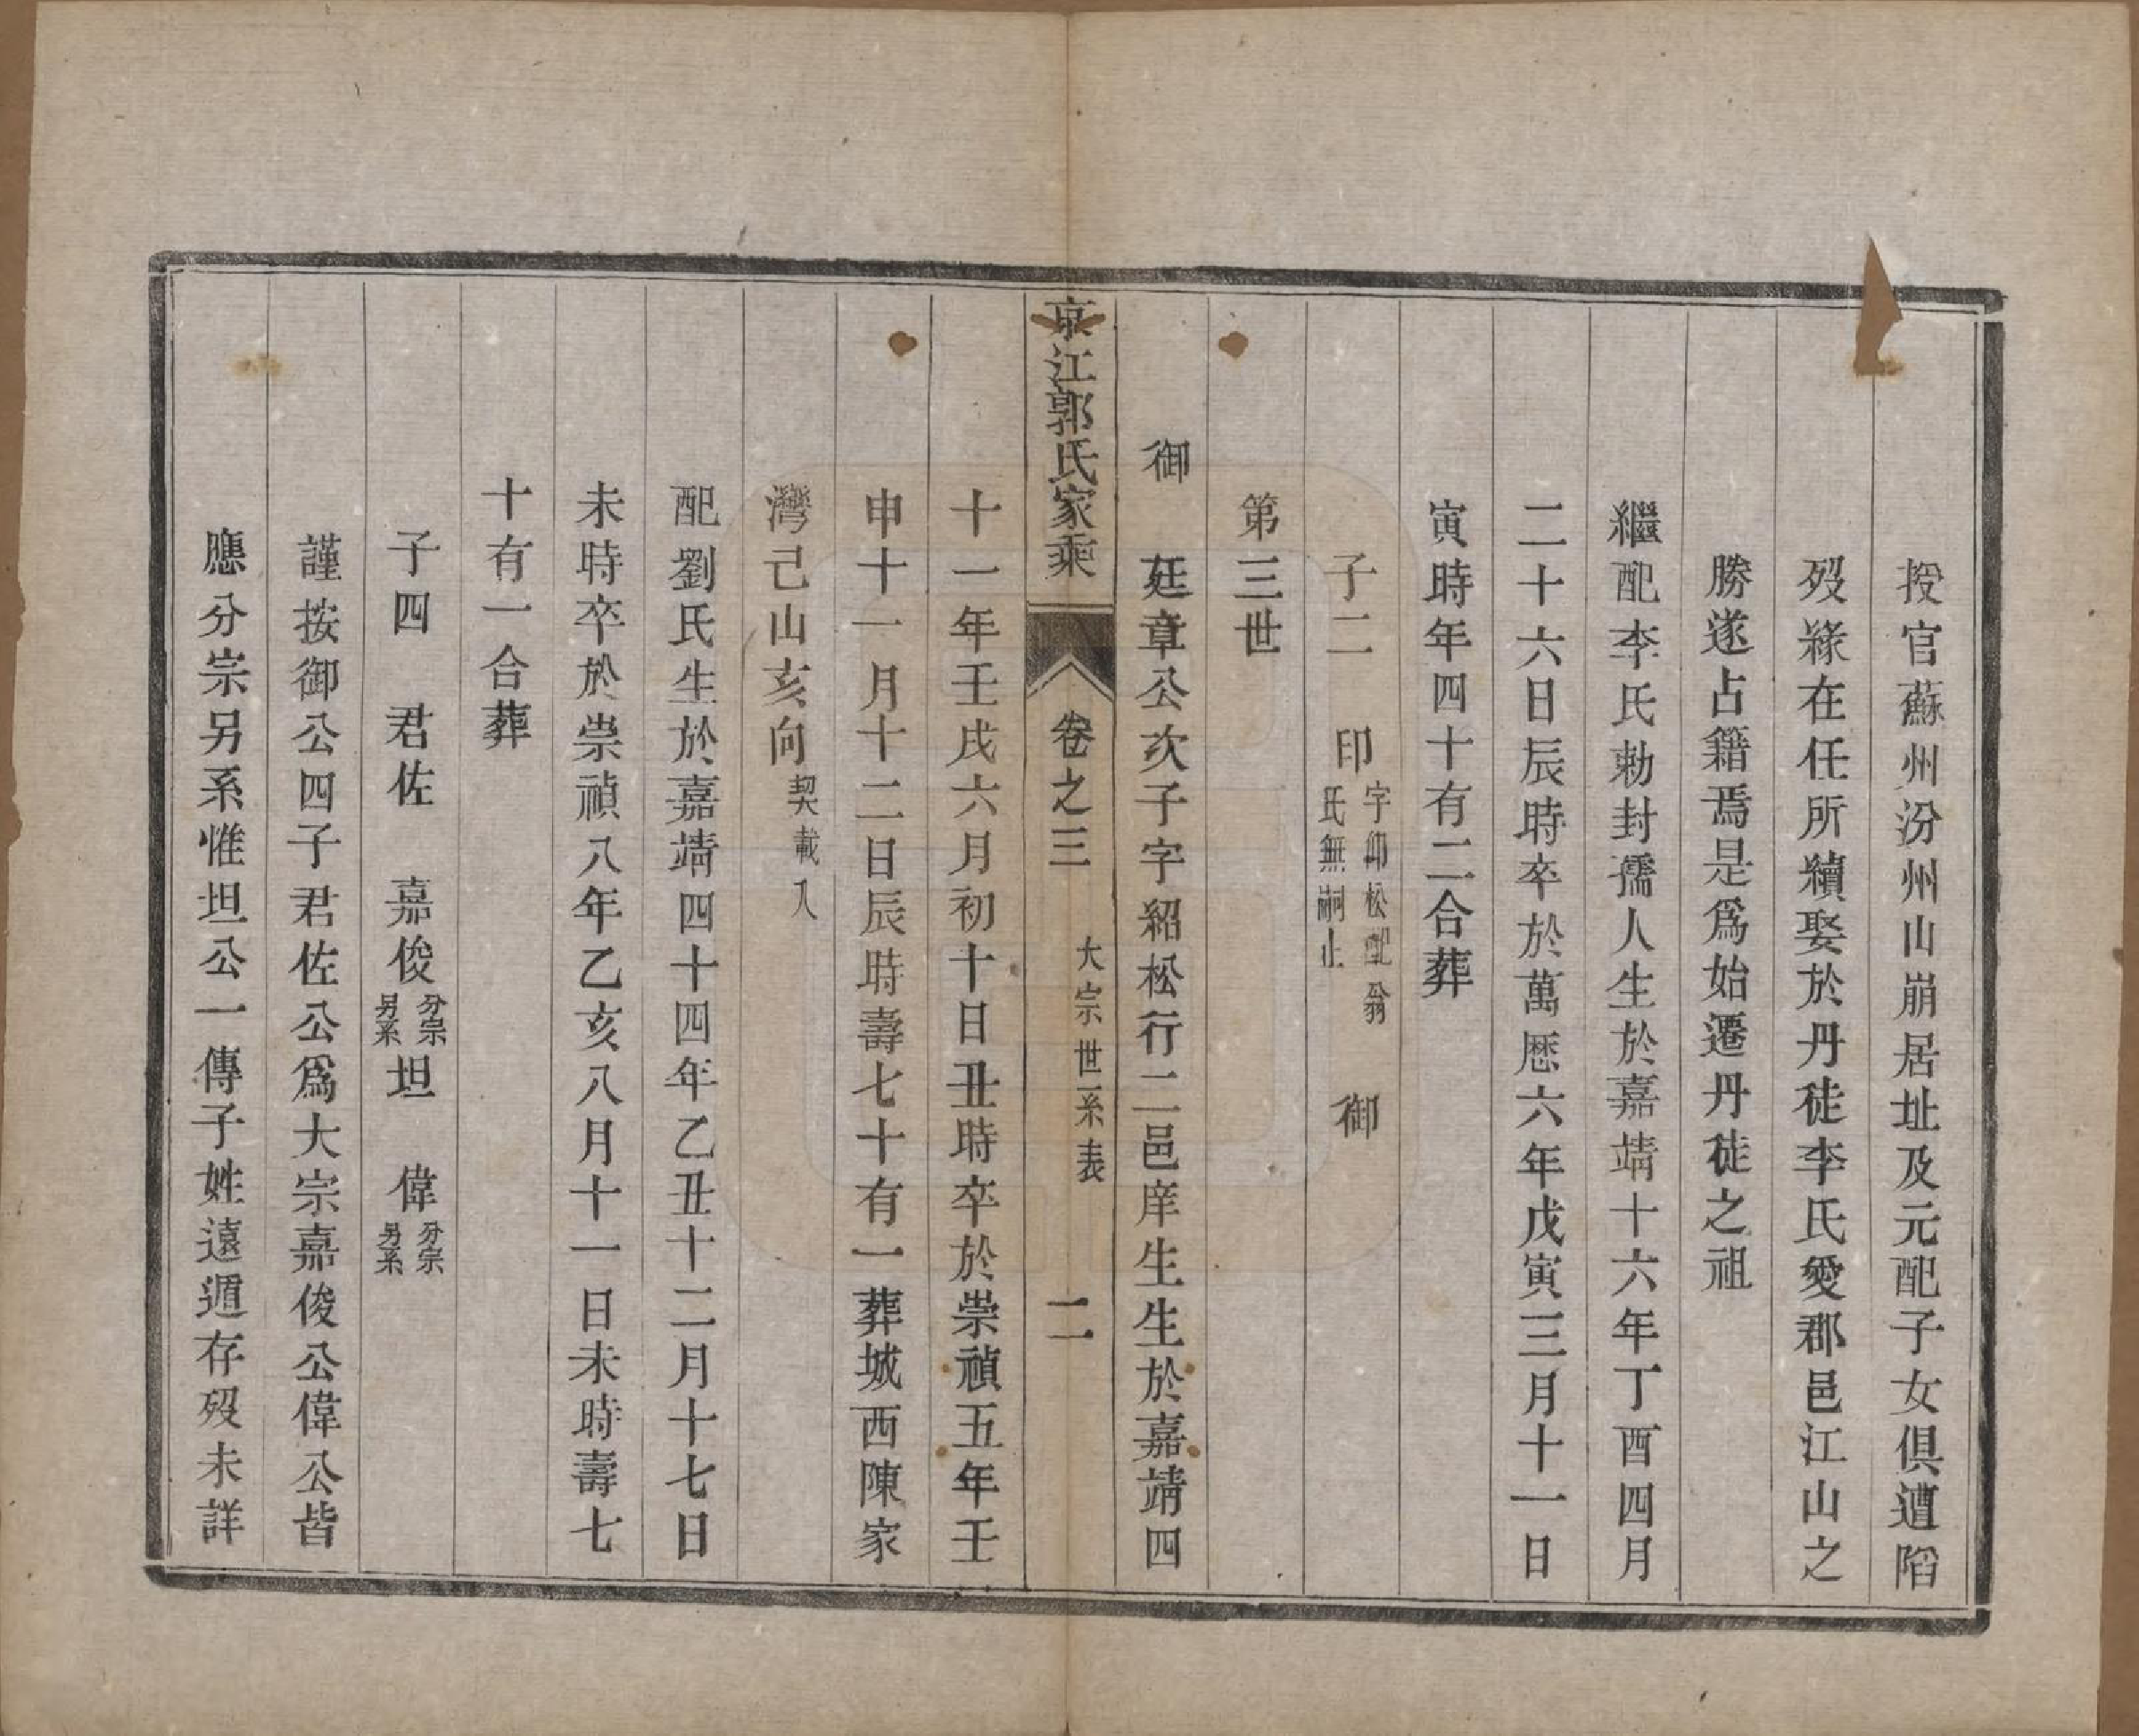 授官蘇州汾州山崩居址及元配子女俱遭陷
歿緣在任所續娶於丹徒李氏愛郡邑江山之
勝遂占籍焉是爲始遷丹徒之祖
繼配李氏勅封孺人生於嘉靖十六年丁酉四月
二十六日辰時卒於萬厯六年戊寅三月十一日
寅時年四十有二合葬
子二　印字仰松配翁氏無嗣止　御
第三世
御　廷章公次子字紹松行二邑庠生生於嘉靖四
京江郭氏家乘　卷之三　大宗世系表　二
十一年壬戌六月初十日丑時卒於崇禎五年壬
申十一月十二日辰時壽七十有一葬城西陳家
灣己山亥向契載入
配劉氏生於嘉靖四十四年乙丑十二月十七日
未時卒於崇禎八年乙亥八月十一日未時壽七
十有一合葬
子四　君佐　嘉俊分宗另系　坦　偉分宗另系
謹按御公四子君佐公爲大宗嘉俊公偉公皆
應分宗另系惟坦公一傳子姓遠遁存歿未詳